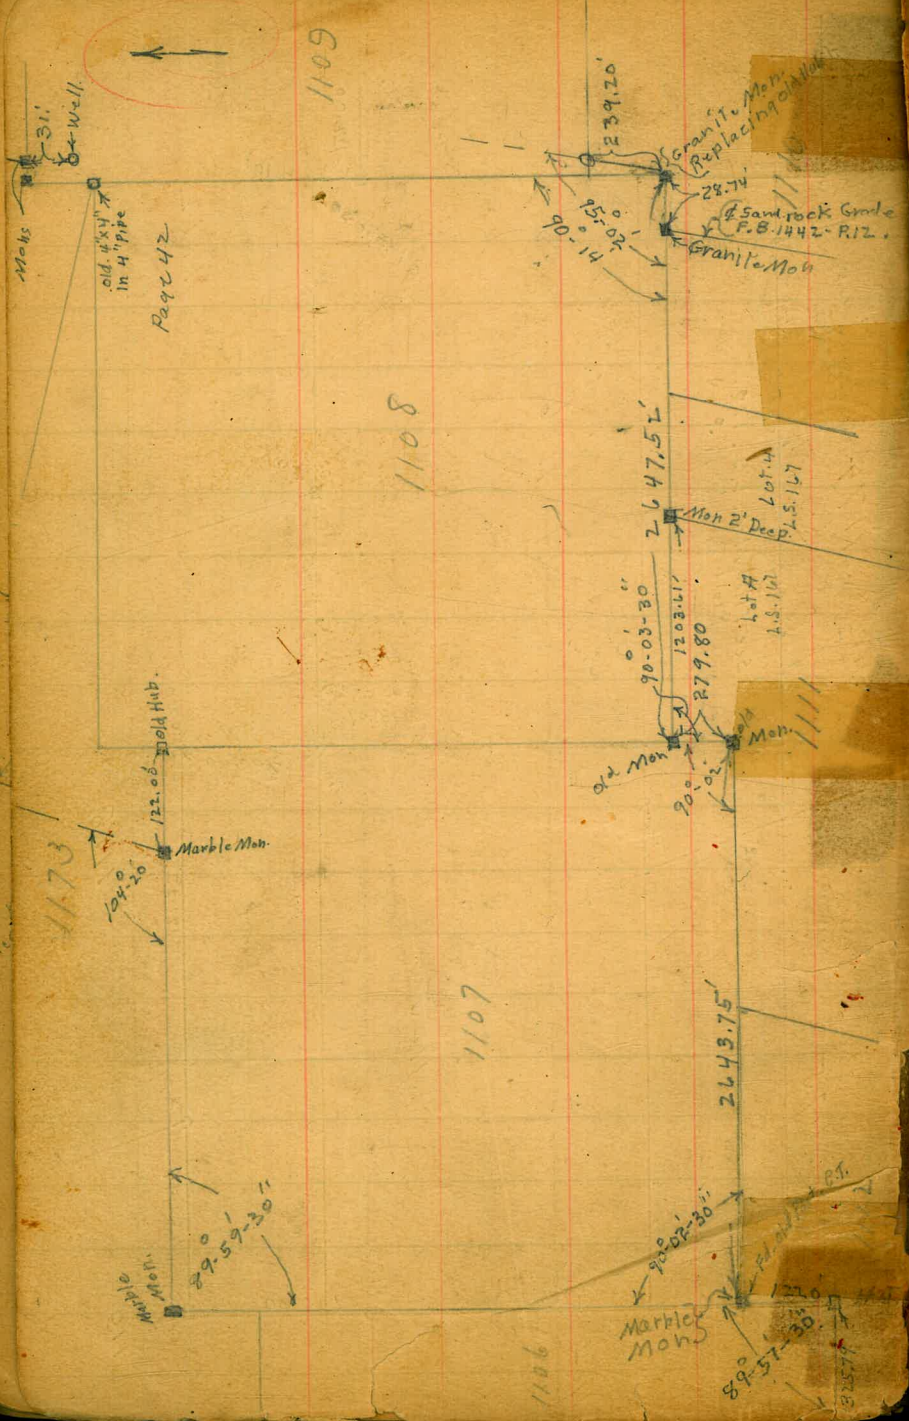 1109
31'
Well.
Mons
old 4"x4"
in 4" Pipe
Page 42
239.20'
Granite Mon.
Replacing old Hub
28.74'
₵ Sand rock Grade
F.B. 1442 - P.12.
Granite Mon
95°-02'
90°-14'
1108
2647.52'
Mon 2' Deep.
Lot 4
L.S. 167
Lot A
L.S. 167
90°-03'-30"
1203.61'
279.80
old Mon
old
Mon.
1111
90°-02'
old Hub.
122.08'
Marble Mon.
104°-20'
1173
1107
2643.75'
89°-59'-30"
Marble
Mon.
90°-02'-30"
Fd. old
P.T.
Marble
Mon
89°-57'-30"
1106